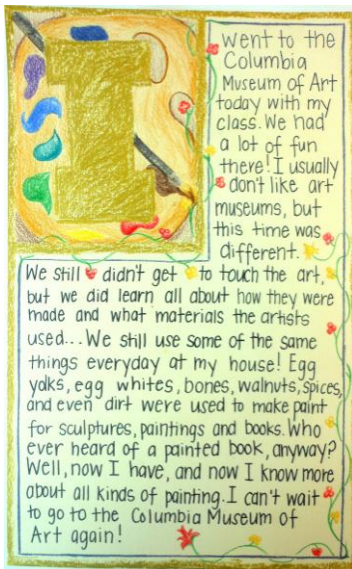 I
went to the
Columbia
Museum of Art
today with my
class. We had
a lot of fun
there! I usually
don't like art
museums, but
this time was
different.
We still didn't get to touch the art,
but we did learn all about how they were
made and what materials the artists
used... We still use some of the same
things everyday at my house! Egg
yolks, egg whites, bones, walnuts, spices,
and even dirt were used to make paint
for sculptures, paintings and books. Who
ever heard of a painted book, anyway?
Well, now I have, and now I know more
about all kinds of painting. I can't wait
to go to the Columbia Museum of
Art again!